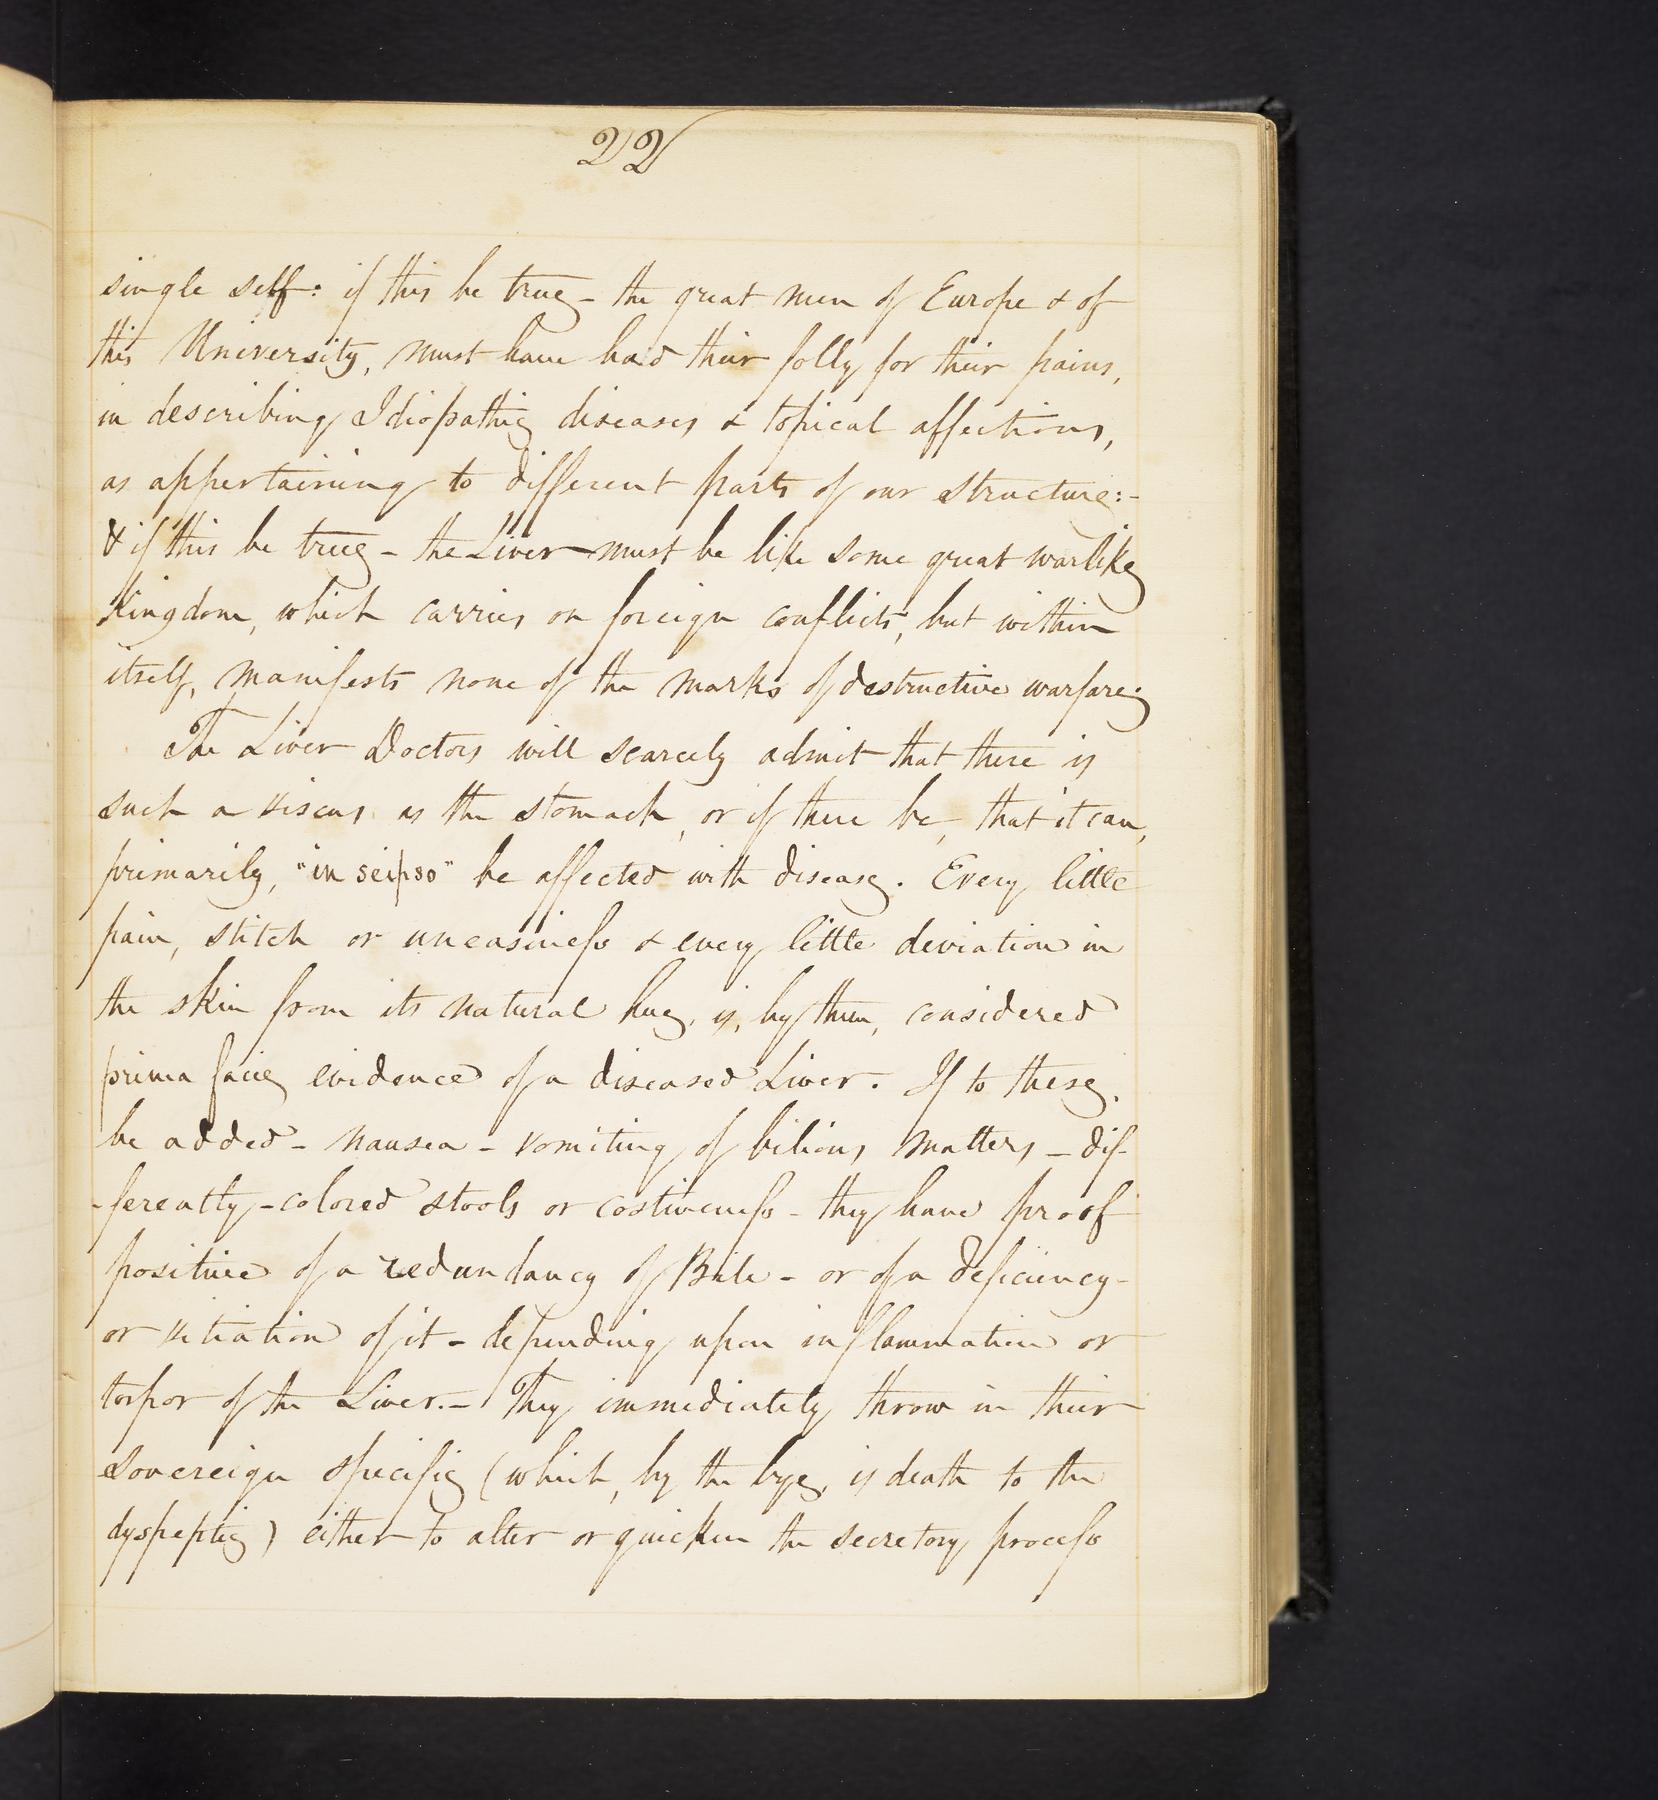 22
single self: if this be true - the great men of Europe & of
this University, must have had their folly for their pains,
in describing Idiopathic diseases & topical affections,
as appertaining to different parts of our structure:-
& if this be true - the Liver must be like some great warlike
Kingdom, which carries on foreign conflicts, but within
itself, manifests none of the marks of destructive warfare;
The Liver Doctors will scarcely admit that there is
such a viscus as the stomach, or if there be, that it can,
primarily, "in seipso" be affected with disease. Every little
pain, stitch or uneasiness & every little deviation in
the skin from its natural hue, is, by them, considered
prima facie evidence of a diseased Liver. If to these,
be added - nausea - vomiting of bilious matters - dif-
-ferently-colored stools or costiveness - they have proof
positive of a redundancy of Bile - or of a deficiency-
or vitiation of it - depending upon inflammation or
torpor of the Liver.- They immediately throw in their
sovereign specific (which, by the bye, is death to the
dyspeptic) either to alter or quicken the secretory process